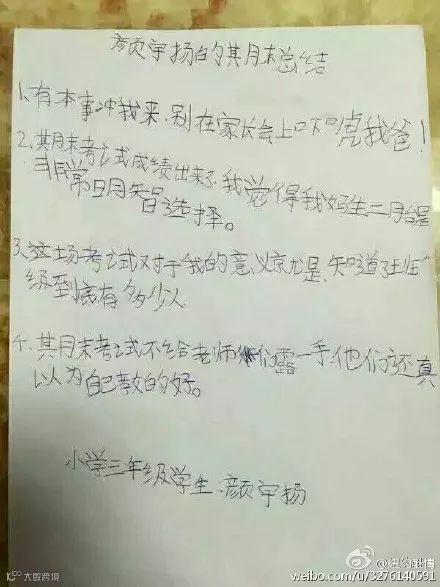 颜宇扬的其月末总结
1.有本事冲我来,别在家长会上口下口虎我爸!
2.其月末考试成绩出来了,我觉得我妈生二月台是
非常日月智选择。
3.这场考试对于我的意义京尤是,知道了班
级到底有多少人
4.其月末考试不给老师们露一手,他们还真
以为自己教的好。
小学三年级学生:颜宇扬
大数跨境
weibo.com/u/3276140591